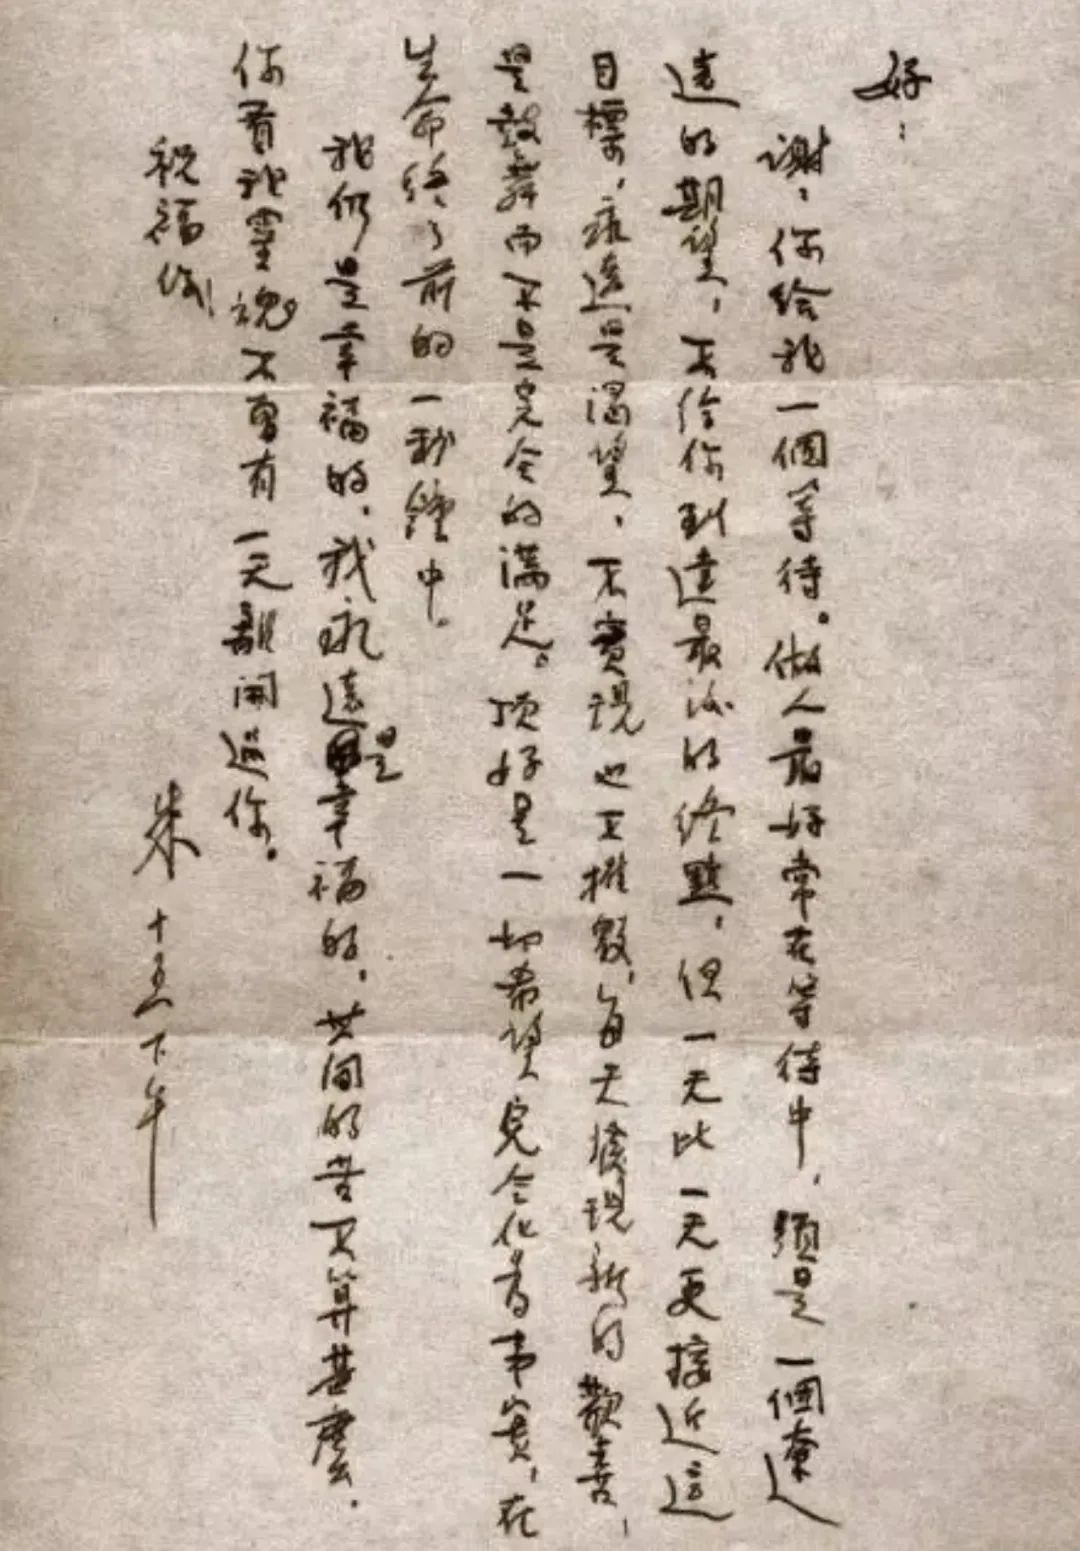 好：
谢：你给我一個等待。做人最好常在等待中，須是一個遼
遠的期望，不给你到達最后的终點，但一天比一天更接近這
目標，永遠是渴望，不實現也不摧毀，每天發現新的歡喜，
是鼓舞而不是完全的满足。顶好是一切希望完全化為事實，在
生命终了前的一秒鐘中。
我仍是幸福的，我永遠是幸福的，世間的苦不算甚麼。
你看我靈魂不曾有一天離開過你。
祝福你
朱 十五 下午